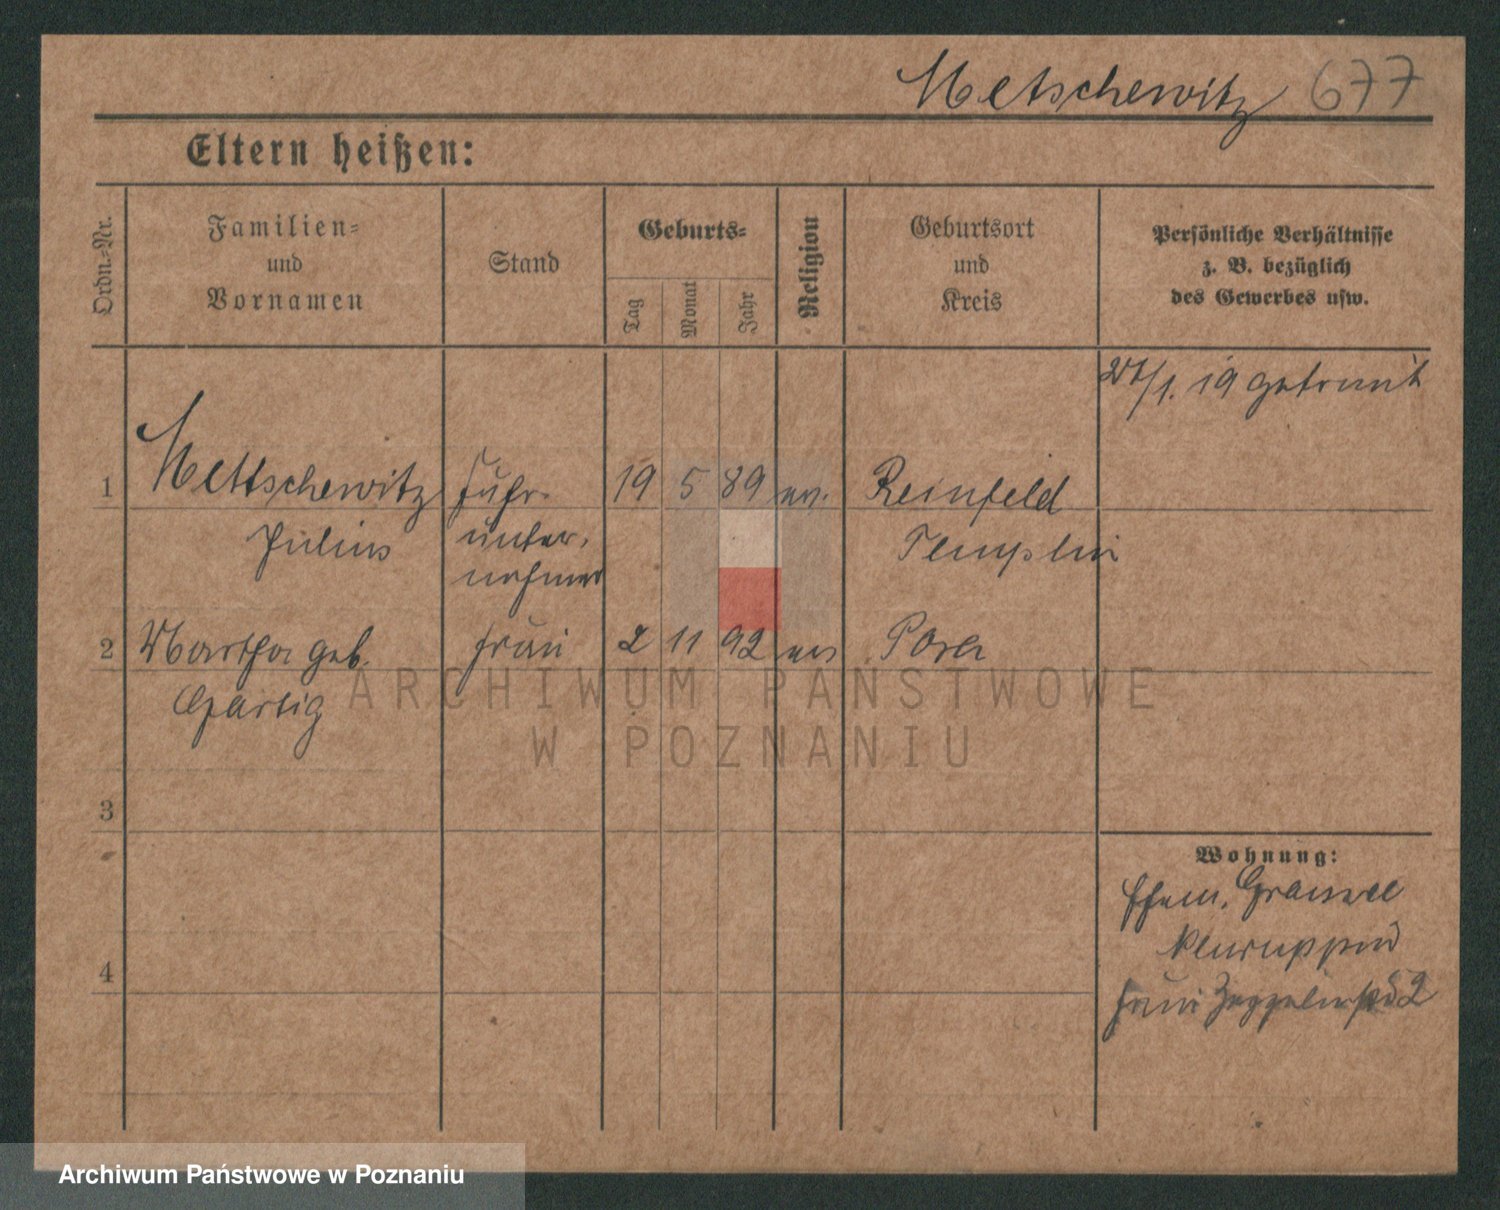 Metschewitz 677
Eltern heißen:
Ordn.-Nr.
Familien-
und
Vornamen
Stand
Geburts-
Tag
Monat
Jahr
Religion
Geburtsort
und
Kreis
Persönliche Verhältnisse
z. B. bezüglich
des Gewerbes usw.
/1. 19 getraut
1 Mettschewitz Fuhr- 19 5 89 ev. Reinfeld
Julius unter- Templin
nehmer
2 Martha geb. Frau 2 11 92 ev Posen
Hartig
3
4
Wohnung:
Ehem.
Neuruppin
Frau Zeppelinstr 2
ARCHIWUM PAŃSTWOWE
W POZNANIU
Archiwum Państwowe w Poznaniu